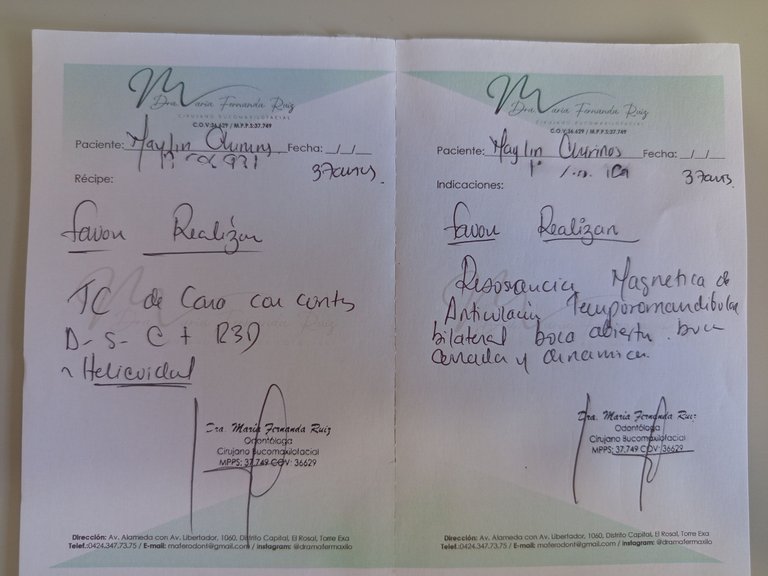 Dra. María Fernanda Ruiz
CIRUJANO BUCOMAXILOFACIAL
C.O.V:36.629 / M.P.P.S:37.749
Paciente: Maylin Chirinos Fecha: / /
37 años.
Récipe:
favor Realizar
TC de Cara con cortes
D- S- C + R3D
Helicoidal
Dra. María Fernanda Ruiz
Odontóloga
Cirujano Bucomaxilofacial
MPPS: 37.749 COV: 36629
Dirección: Av. Alameda con Av. Libertador, 1060, Distrito Capital, El Rosal, Torre Exa
Telef.:0424.347.73.75 / E-mail: maferodont@gmail.com / instagram: @dramafermaxilo
Dra. María Fernanda Ruiz
CIRUJANO BUCOMAXILOFACIAL
C.O.V:36.629 / M.P.P.S:37.749
Paciente: Maylin Chirinos Fecha: / /
37 años.
Indicaciones:
favor Realizar
Resonancia Magnetica de
Articulación Temporomandibular
bilateral boca abierta. boca
cerrada y dinamica.
Dra. María Fernanda Ruiz
Odontóloga
Cirujano Bucomaxilofacial
MPPS: 37.749 COV: 36629
Dirección: Av. Alameda con Av. Libertador, 1060, Distrito Capital, El Rosal, Torre Exa
Telef.:0424.347.73.75 / E-mail: maferodont@gmail.com / instagram: @dramafermaxilo